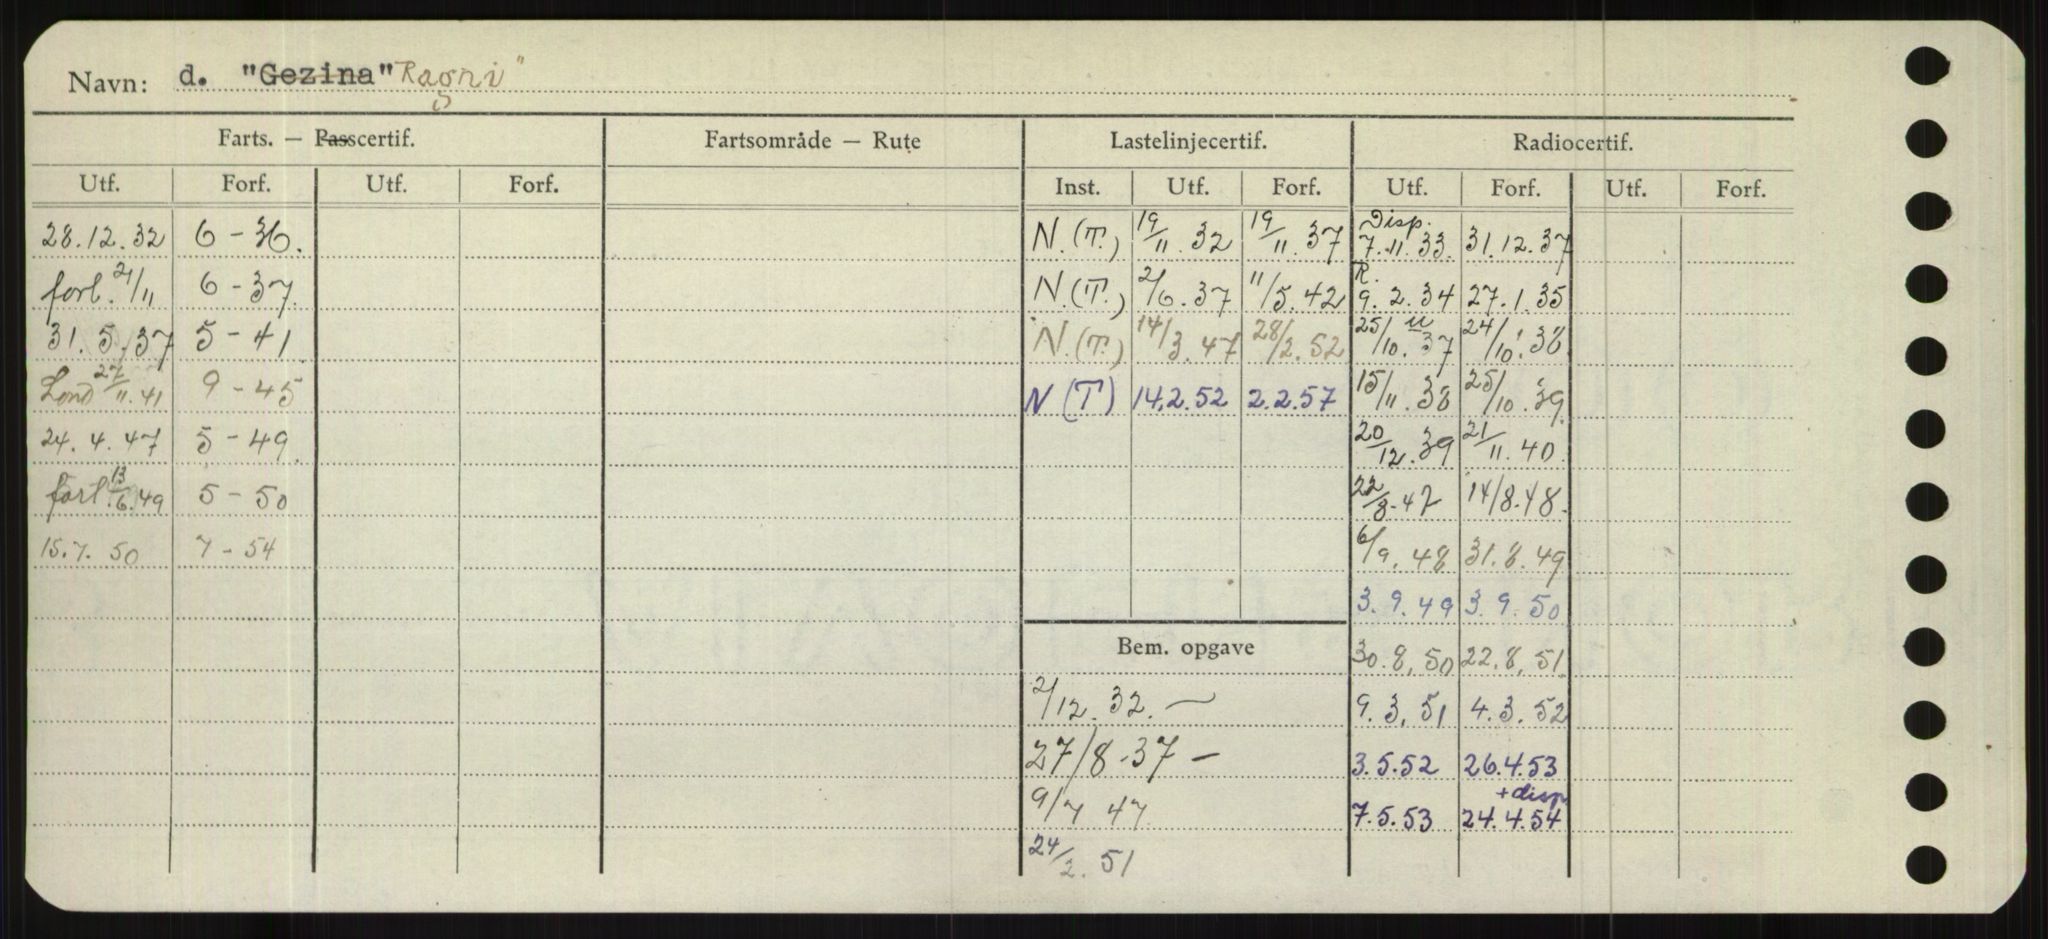 Navn: d. "Gezina" Ragni"
Farts. — Passcertif. Fartsområde — Rute Lastelinjecertif. Radiocertif.
Utf. Forf. Utf. Forf. Inst. Utf. Forf. Utf. Forf. Utf. Forf.
28.12.32 6 - 36. N.(T.) 19/11.32 19/11.37 Disp. 7.11.33. 31.12.37
forl. 2/11 6 - 37. N.(T.) 2/6.37 11/5.42 R. 9.2.34 27.1.35
31.5.37 5 - 41 N.(T.) 14/3.47 28/2.52 25/10.37 24/10.38
Lond 27/11.41 9 - 45 N (T) 14.2.52 2.2.57 15/11.38 25/10.39
24.4.47 5 - 49 20/12.39 21/11.40
forl 13/6.49 5 - 50 22/8.47 14/8.48
15.7.50 7 - 54 6/9.48 31.8.49
3.9.49 3.9.50
Bem. opgave 30.8.50 22.8.51
2/12.32. — 9.3.51 4.3.52
27/8-37 — 3.5.52 26.4.53
9/7 47 7.5.53 + disp 24.4.54
24/2.51